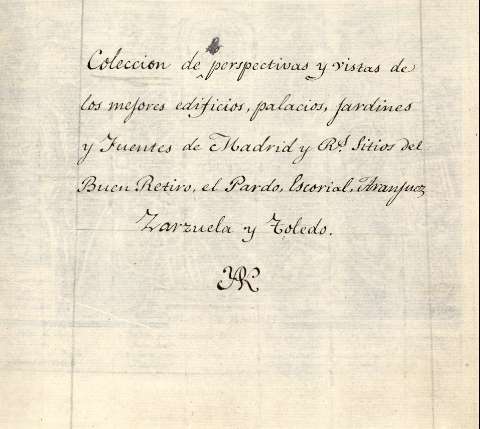 Coleccion de perspectivas y vistas de
los mejores edificios, palacios, Jardines
y Fuentes de Madrid y Rs. Sitios del
Buen Retiro, el Pardo, Escorial, Aranjuez
Zarzuela y Toledo.